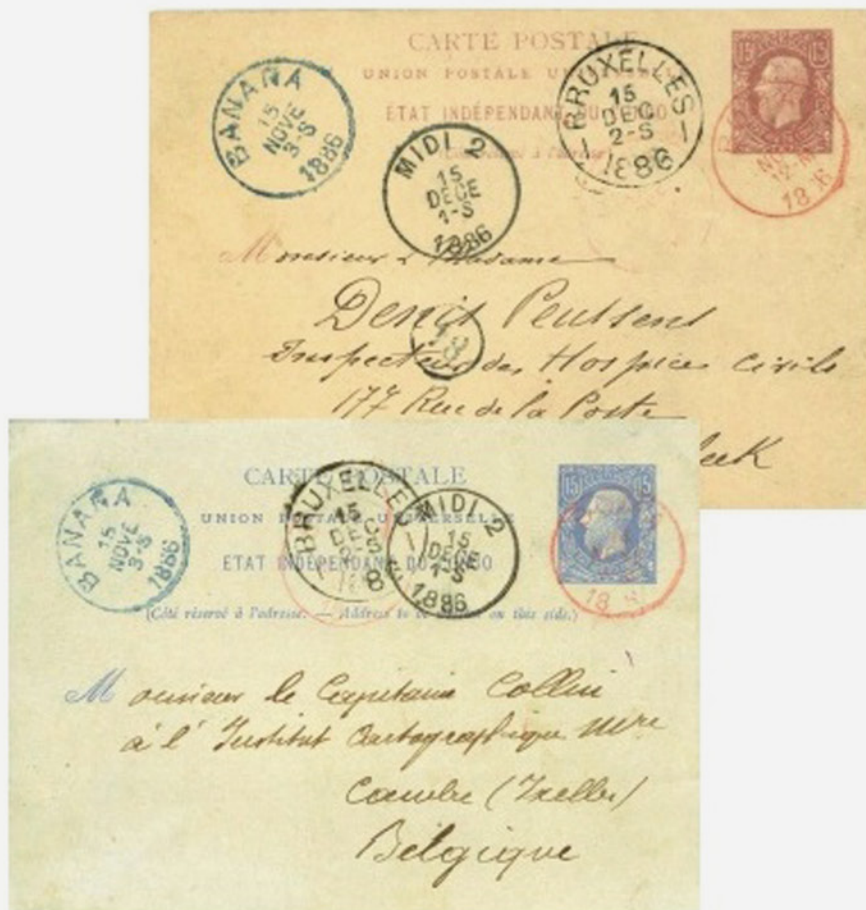 CARTE POSTALE
UNION POSTALE
ÉTAT INDÉPENDANT DU CONGO
15 15
BANANA
15
NOVE
3-S
1886
MIDI 2
15
DECE
1-S
1886
BRUXELLES
15
DEC
2-S
1886
12-M
18 6
Monsieur & Madame
Denis Peutsent
18
Inspecteur des Hospices Civils
177 Rue de la Poste
CARTE POSTALE
UNION POSTALE UNIVERSELLE
ÉTAT INDÉPENDANT DU CONGO
(Côté réservé à l'adresse. — Address to be on this side.)
15 15
BANANA
15
NOVE
3-S
1886
BRUXELLES
15
MIDI 2
15
DECE
1-S
1886
18
Monsieur le Capitaine Collin
à l'Institut Cartographique Mre
Cambre (Ixelles)
Belgique